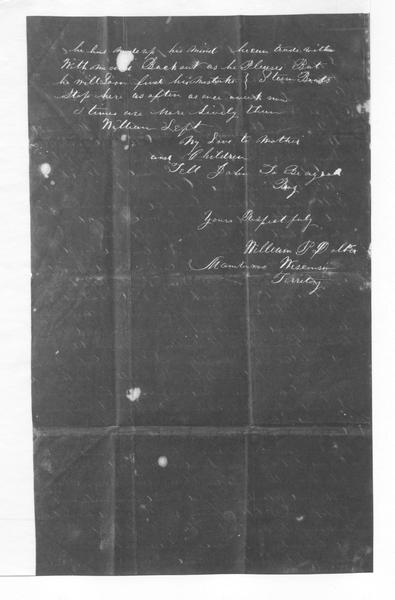 he has made up his mind he can trade with
With me or Back out as he Pleases But
he will soon find his mistake { Steem Boats
Stop here as often as once a week and
times are More lively then
William Left
My Love to Mother
and Children
Tell John To Be a good
Boy
Yours Respectfuly
William P
Wisconsin
Territory